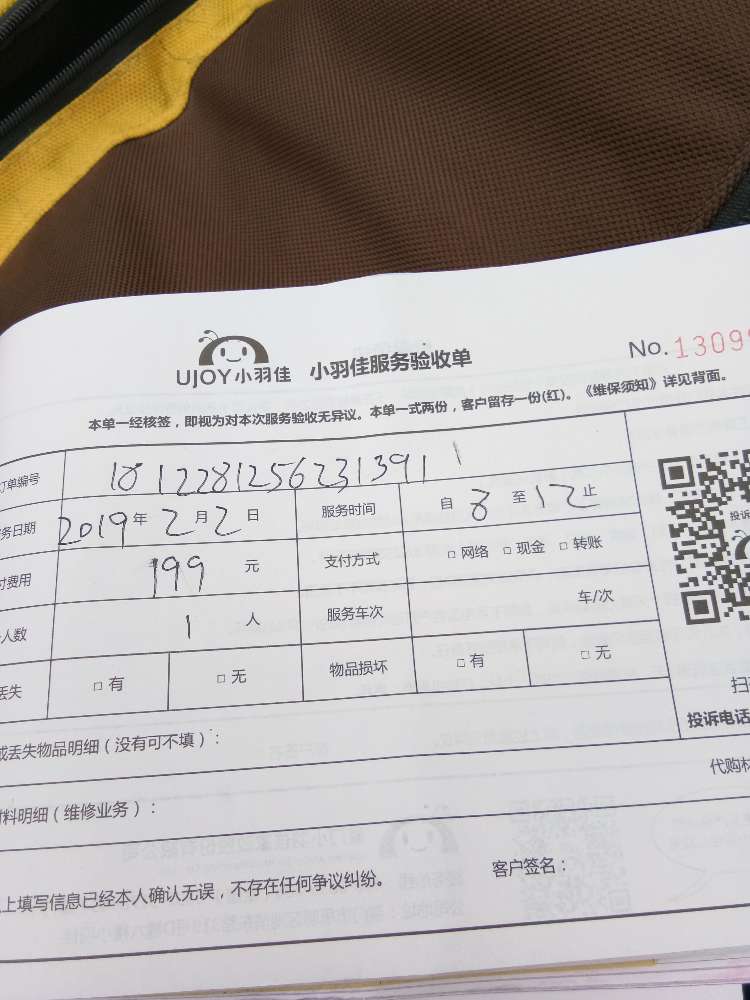 UJOY小羽佳 小羽佳服务验收单 No.1309
本单一经核签，即视为对本次服务验收无异议。本单一式两份，客户留存一份(红)。《维保须知》详见背面。
订单编号 1812281256231391
务日期 2019年2月2日 服务时间 自8至12止
付费用 199元 支付方式 □网络 □现金 □转账
人数 1人 服务车次 车/次
丢失 □有 □无 物品损坏 □有 □无
投诉
扫
投诉电话
或丢失物品明细（没有可不填）：
代购材
材料明细（维修业务）：
上填写信息已经本人确认无误，不存在任何争议纠纷。 客户签名：